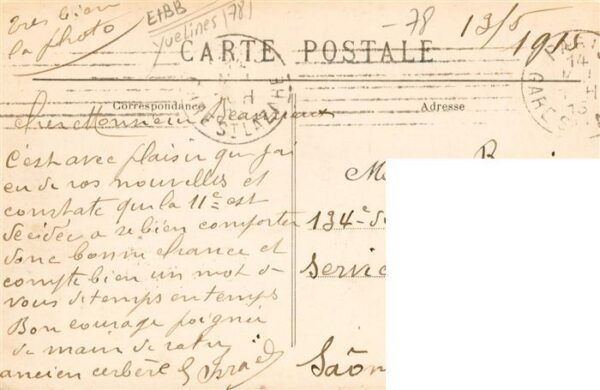 très bien
la photo
E+BB
Yvelines (78)
-78
13/5
1915
CARTE POSTALE
Correspondance
Adresse
ST LAZARE
GARE S
Cher Monsieur
C'est avec plaisir que j'ai
eu de vos nouvelles et
constate que la 11e est
décidée a se bien comporter
donc bonne chance et
compte bien un mot de
vous de temps en temps
Bon courage poignée
de main de votre
ancien cerbère
134e d
Servic
Saôn